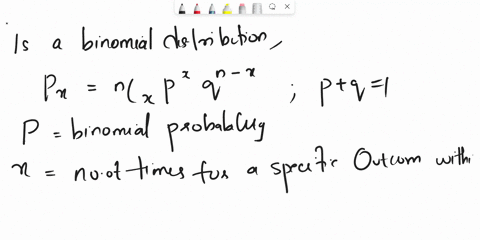 Is a binomial distribution,
Pₓ = nCₓ pˣ qⁿ⁻ˣ ; p+q=1
P = binomial probability
x = no.of times for a specific Outcom withi